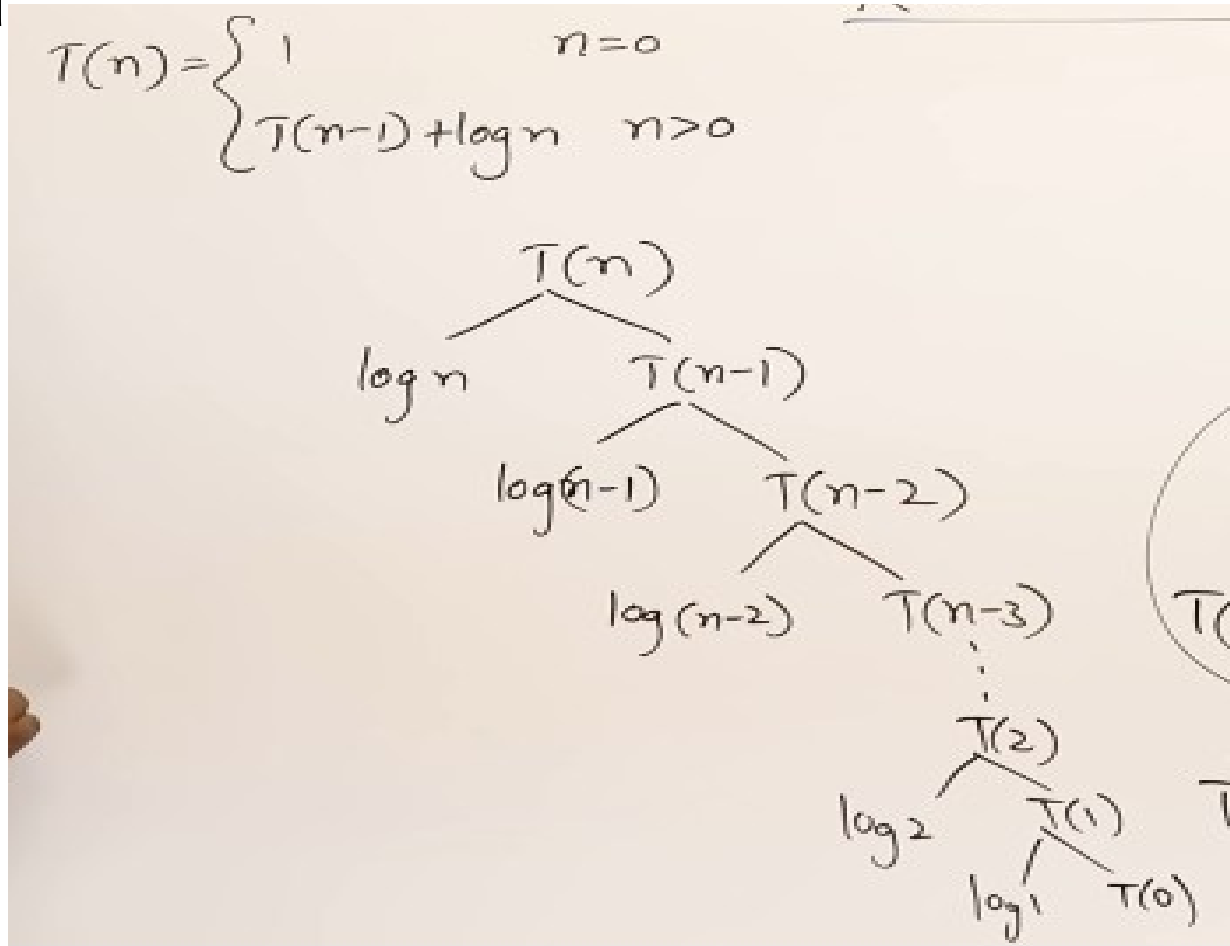 T(n) = { 1 n=0
T(n-1) + log n n>0
T(n)
log n T(n-1)
log(n-1) T(n-2)
log(n-2) T(n-3)
T(
T(2)
log 2 T(1)
log 1 T(0)